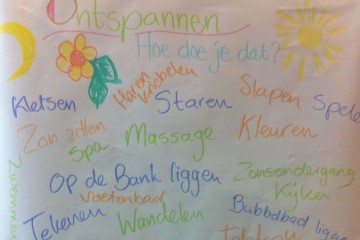 Ontspannen
Hoe doe je dat?
Kletsen
Haren
Staren
Slapen
Spele
Zon zitten
Spa
Massage
Kleuren
Op de Bank liggen
Zonsondergang
Kijken
Voetenbad
Tekenen
Wandelen
Bubbelbad liggen